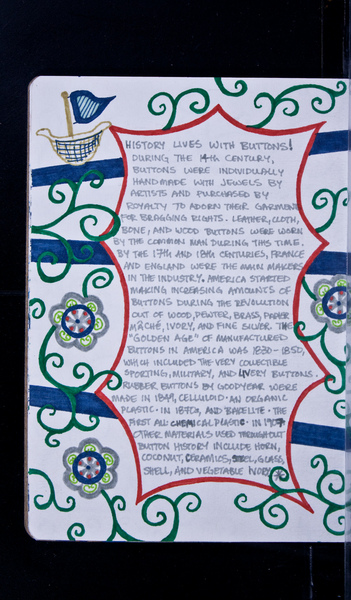 HISTORY LIVES WITH BUTTONS!
DURING THE 14th CENTURY,
BUTTONS WERE INDIVIDUALLY
HANDMADE WITH JEWELS BY
ARTISTS AND PURCHASED BY
ROYALTY TO ADORN THEIR GARMENT
FOR BRAGGING RIGHTS. LEATHER, CLOTH,
BONE, AND WOOD BUTTONS WERE WORN
BY THE COMMON MAN DURING THIS TIME.
BY THE 17th AND 18th CENTURIES, FRANCE
AND ENGLAND WERE THE MAIN MAKERS
IN THE INDUSTRY. AMERICA STARTED
MAKING INCREASING AMOUNTS OF
BUTTONS DURING THE REVOLUTION
OUT OF WOOD, PEWTER, BRASS, PAPER
MÂCHÉ, IVORY, AND FINE SILVER. THE
"GOLDEN AGE" OF MANUFACTURED
BUTTONS IN AMERICA WAS 1830-1850,
WHICH INCLUDED THE VERY COLLECTIBLE
SPORTING, MILITARY, AND LIVERY BUTTONS.
RUBBER BUTTONS BY GOODYEAR WERE
MADE IN 1849, CELLULOID - AN ORGANIC
PLASTIC - IN 1870, AND BAKELITE - THE
FIRST ALL CHEMICAL PLASTIC - IN 1907
OTHER MATERIALS USED THROUGHOUT
BUTTON HISTORY INCLUDE HORN,
COCONUT, CERAMICS, STEEL, GLASS,
SHELL, AND VEGETABLE IVORY